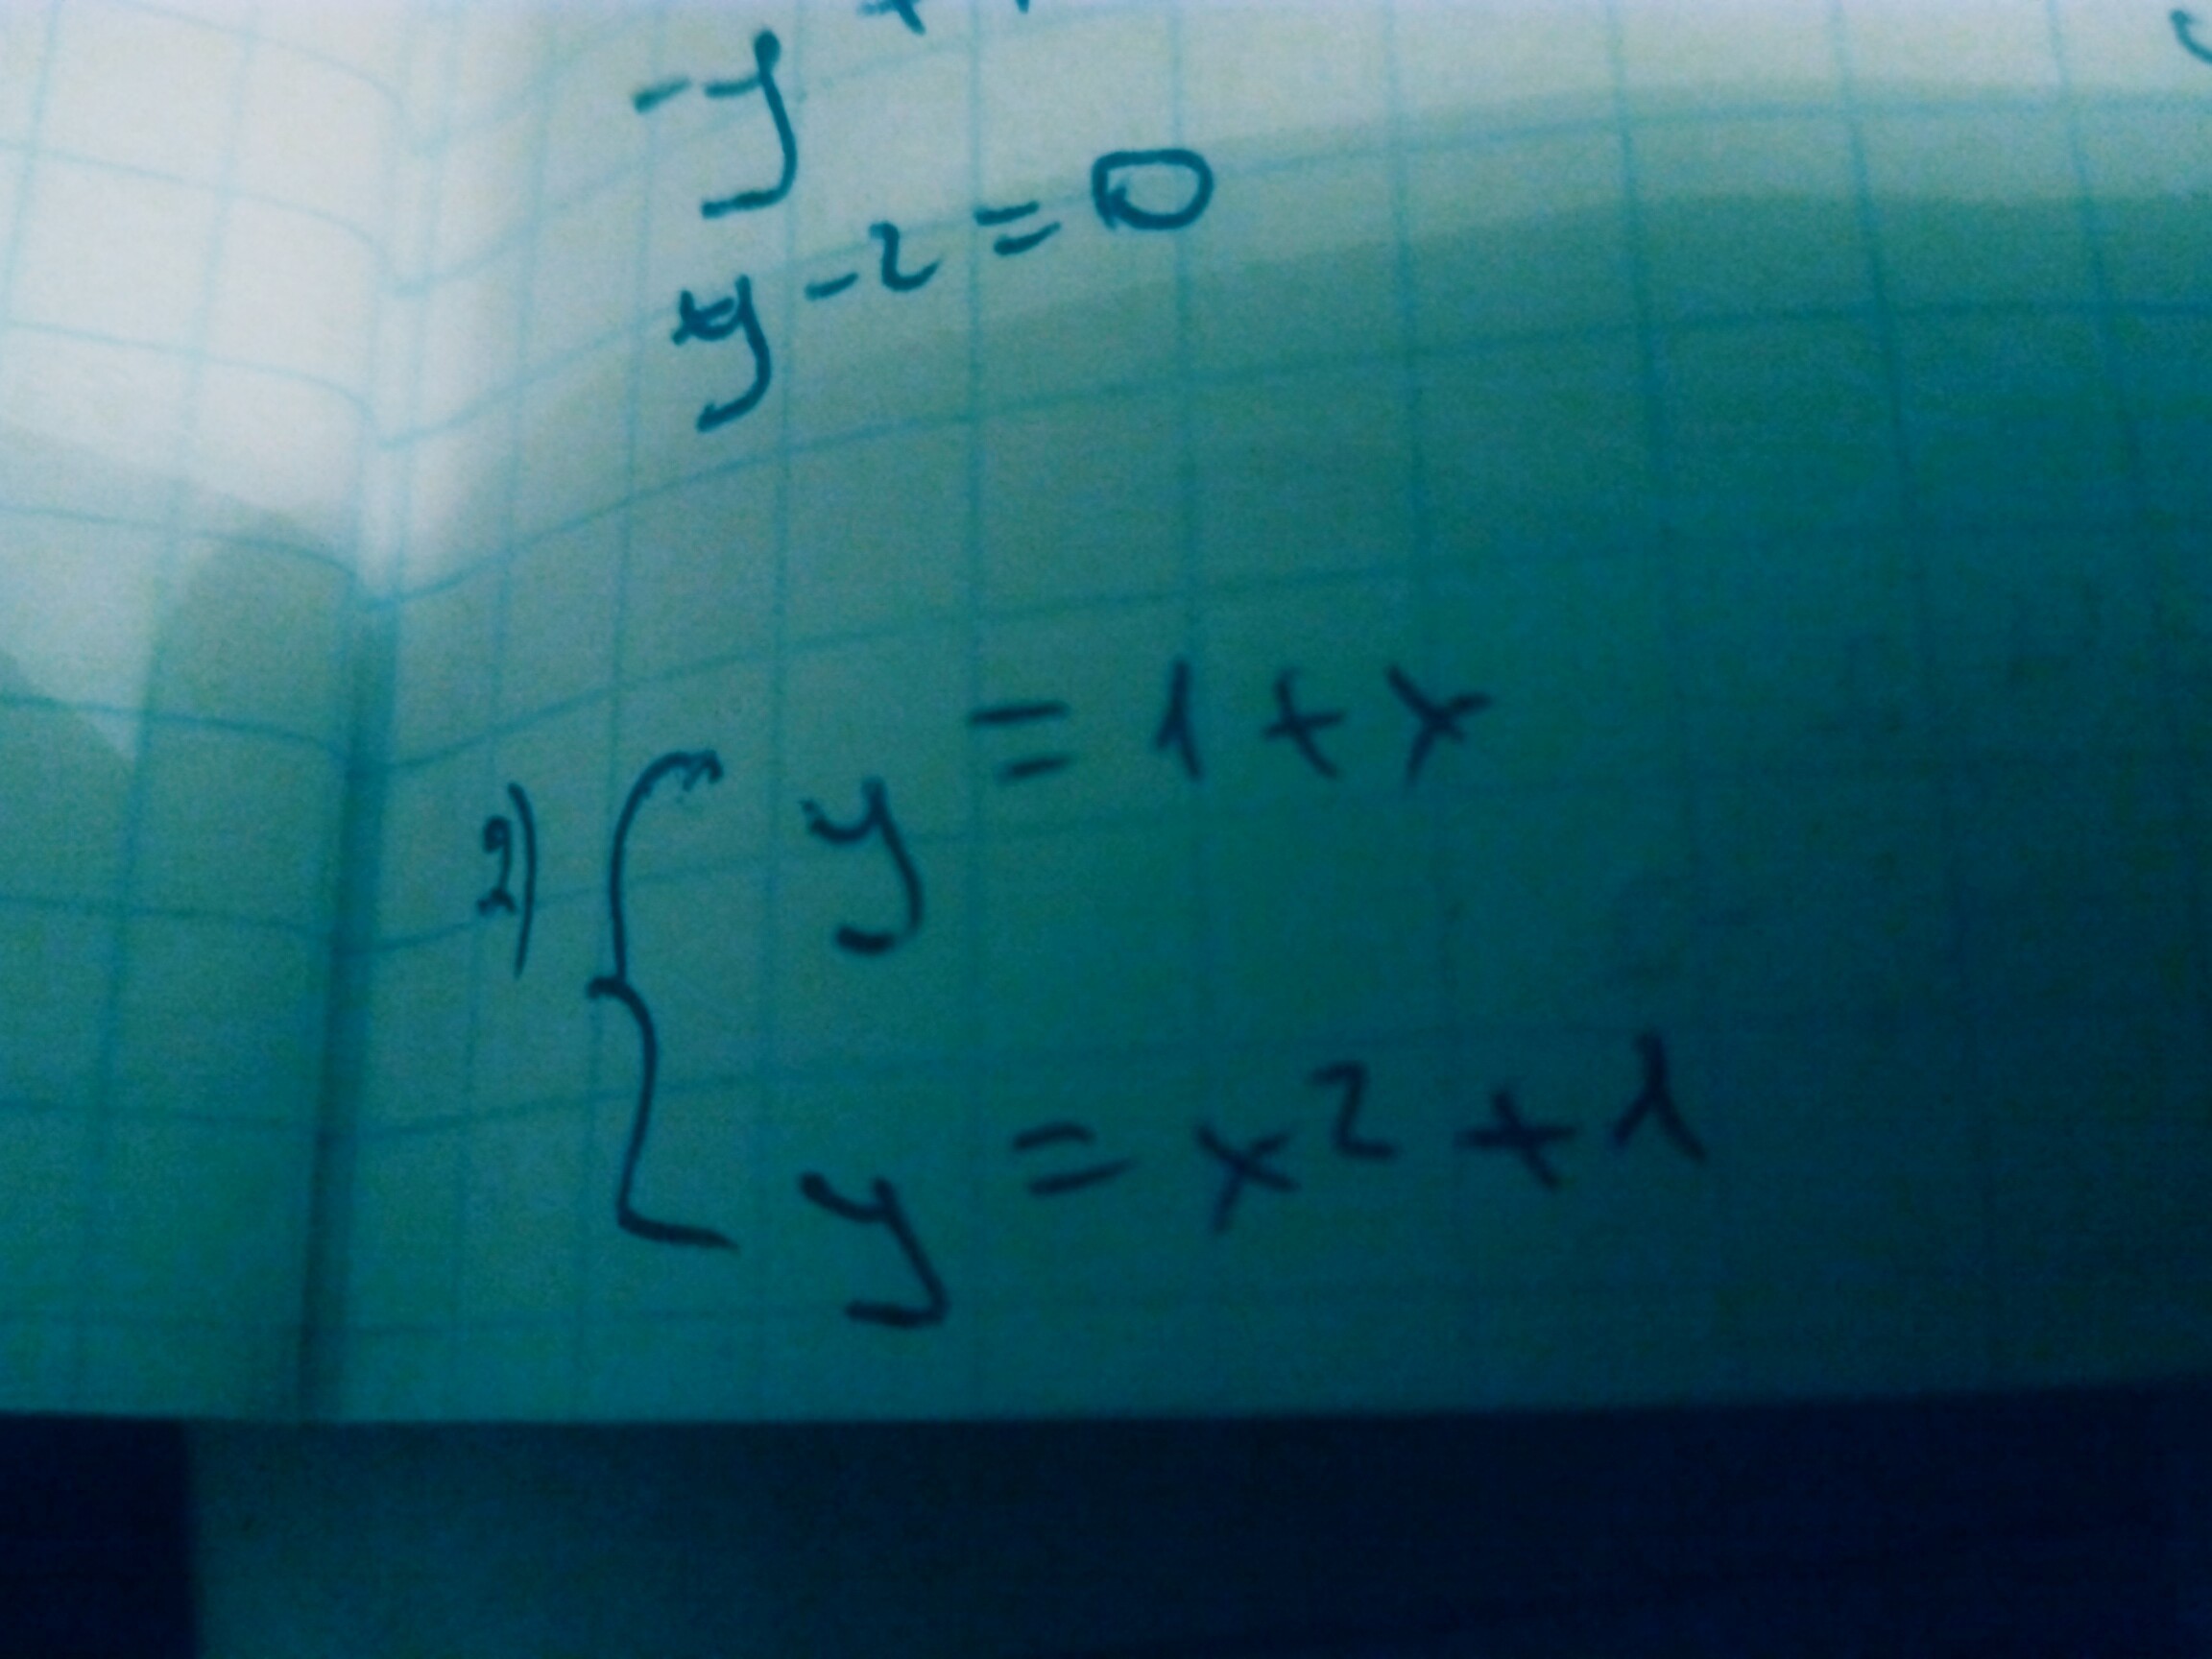 -y
y-2=0
2) { y = 1 + x
y = x² + 1